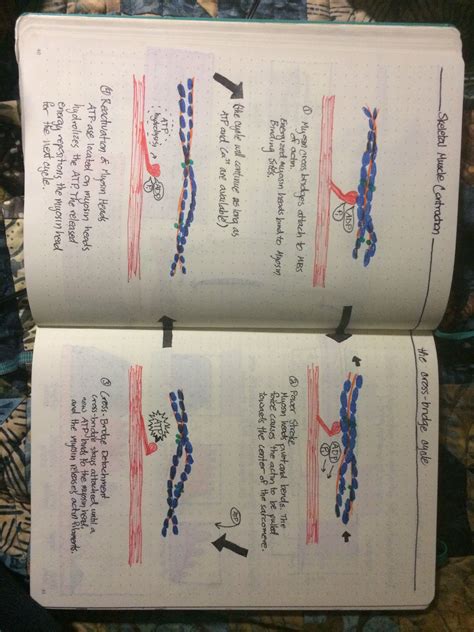 Skeletal Muscle Contraction
the cross-bridge cycle
ADP
P
① Myosin cross bridges attach to MBSs
of actin.
Energized myosin heads bind to Myosin
Binding Sites.
ADP
P
② Power Stroke
Myosin heads pivot and bends. The
force causes the actin to be pulled
towards the center of the sarcomere.
(the cycle will continue as long as
ATP and Ca²⁺ are available)
ATP
hydrolysis
ADP
P
④ Reactivation of Myosin Heads
ATP are located on myosin heads
hydrolizes the ATP. The released
energy repositions the myosin head
for the next cycle.
New
ATP
③ Cross-Bridge Detachment
cross-bridge stays attached until a
new ATP binds to the myosin head
and the myosin releases actin filaments.